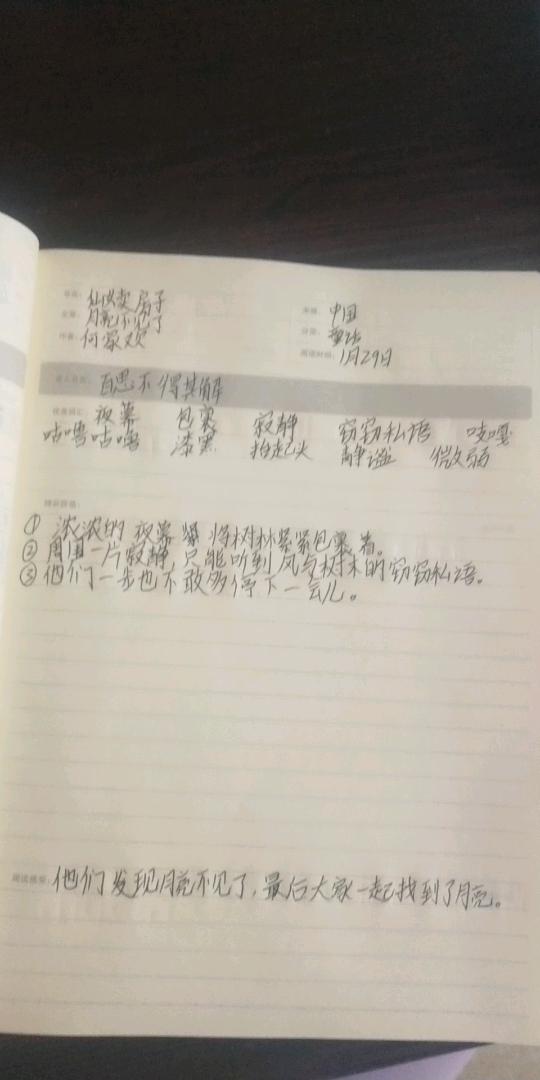 仙女卖房子
月亮不见了
作者: 何家欢
中国
童话
阅读时间: 1月29日
百思不得其解
夜幕 包裹 寂静 窃窃私语 吱嘎
咕噜咕噜 漆黑 抬起头 静谧 微弱
① 浓浓的夜幕 将树林紧紧包裹着。
② 周围一片寂静,只能听到风与树木的窃窃私语。
③ 他们一步也不敢多停下一会儿。
他们发现月亮不见了,最后大家一起找到了月亮。